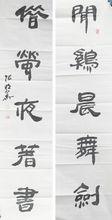 聞鷄晨舞劍
借螢夜著書